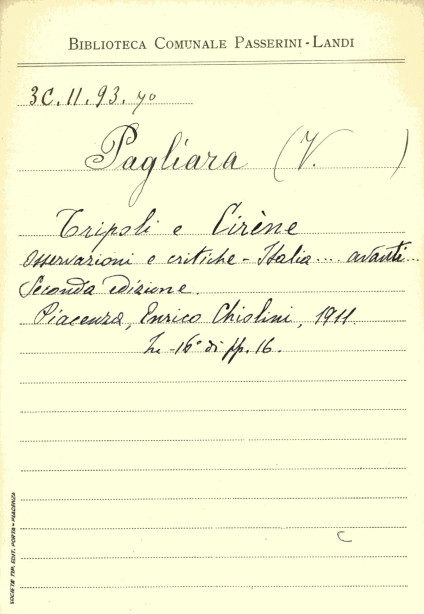 BIBLIOTECA COMUNALE PASSERINI-LANDI
3C.11.93. 40
Pagliara (V. )
Tripoli e Cirène
Osservazioni e critiche - Italia .... avanti...
Seconda edizione.
Piacenza, Enrico Ghislini, 1911
In-16° di pp. 16.
C
SOCIETÀ TIP. EDIT. PORTA-PIACENZA